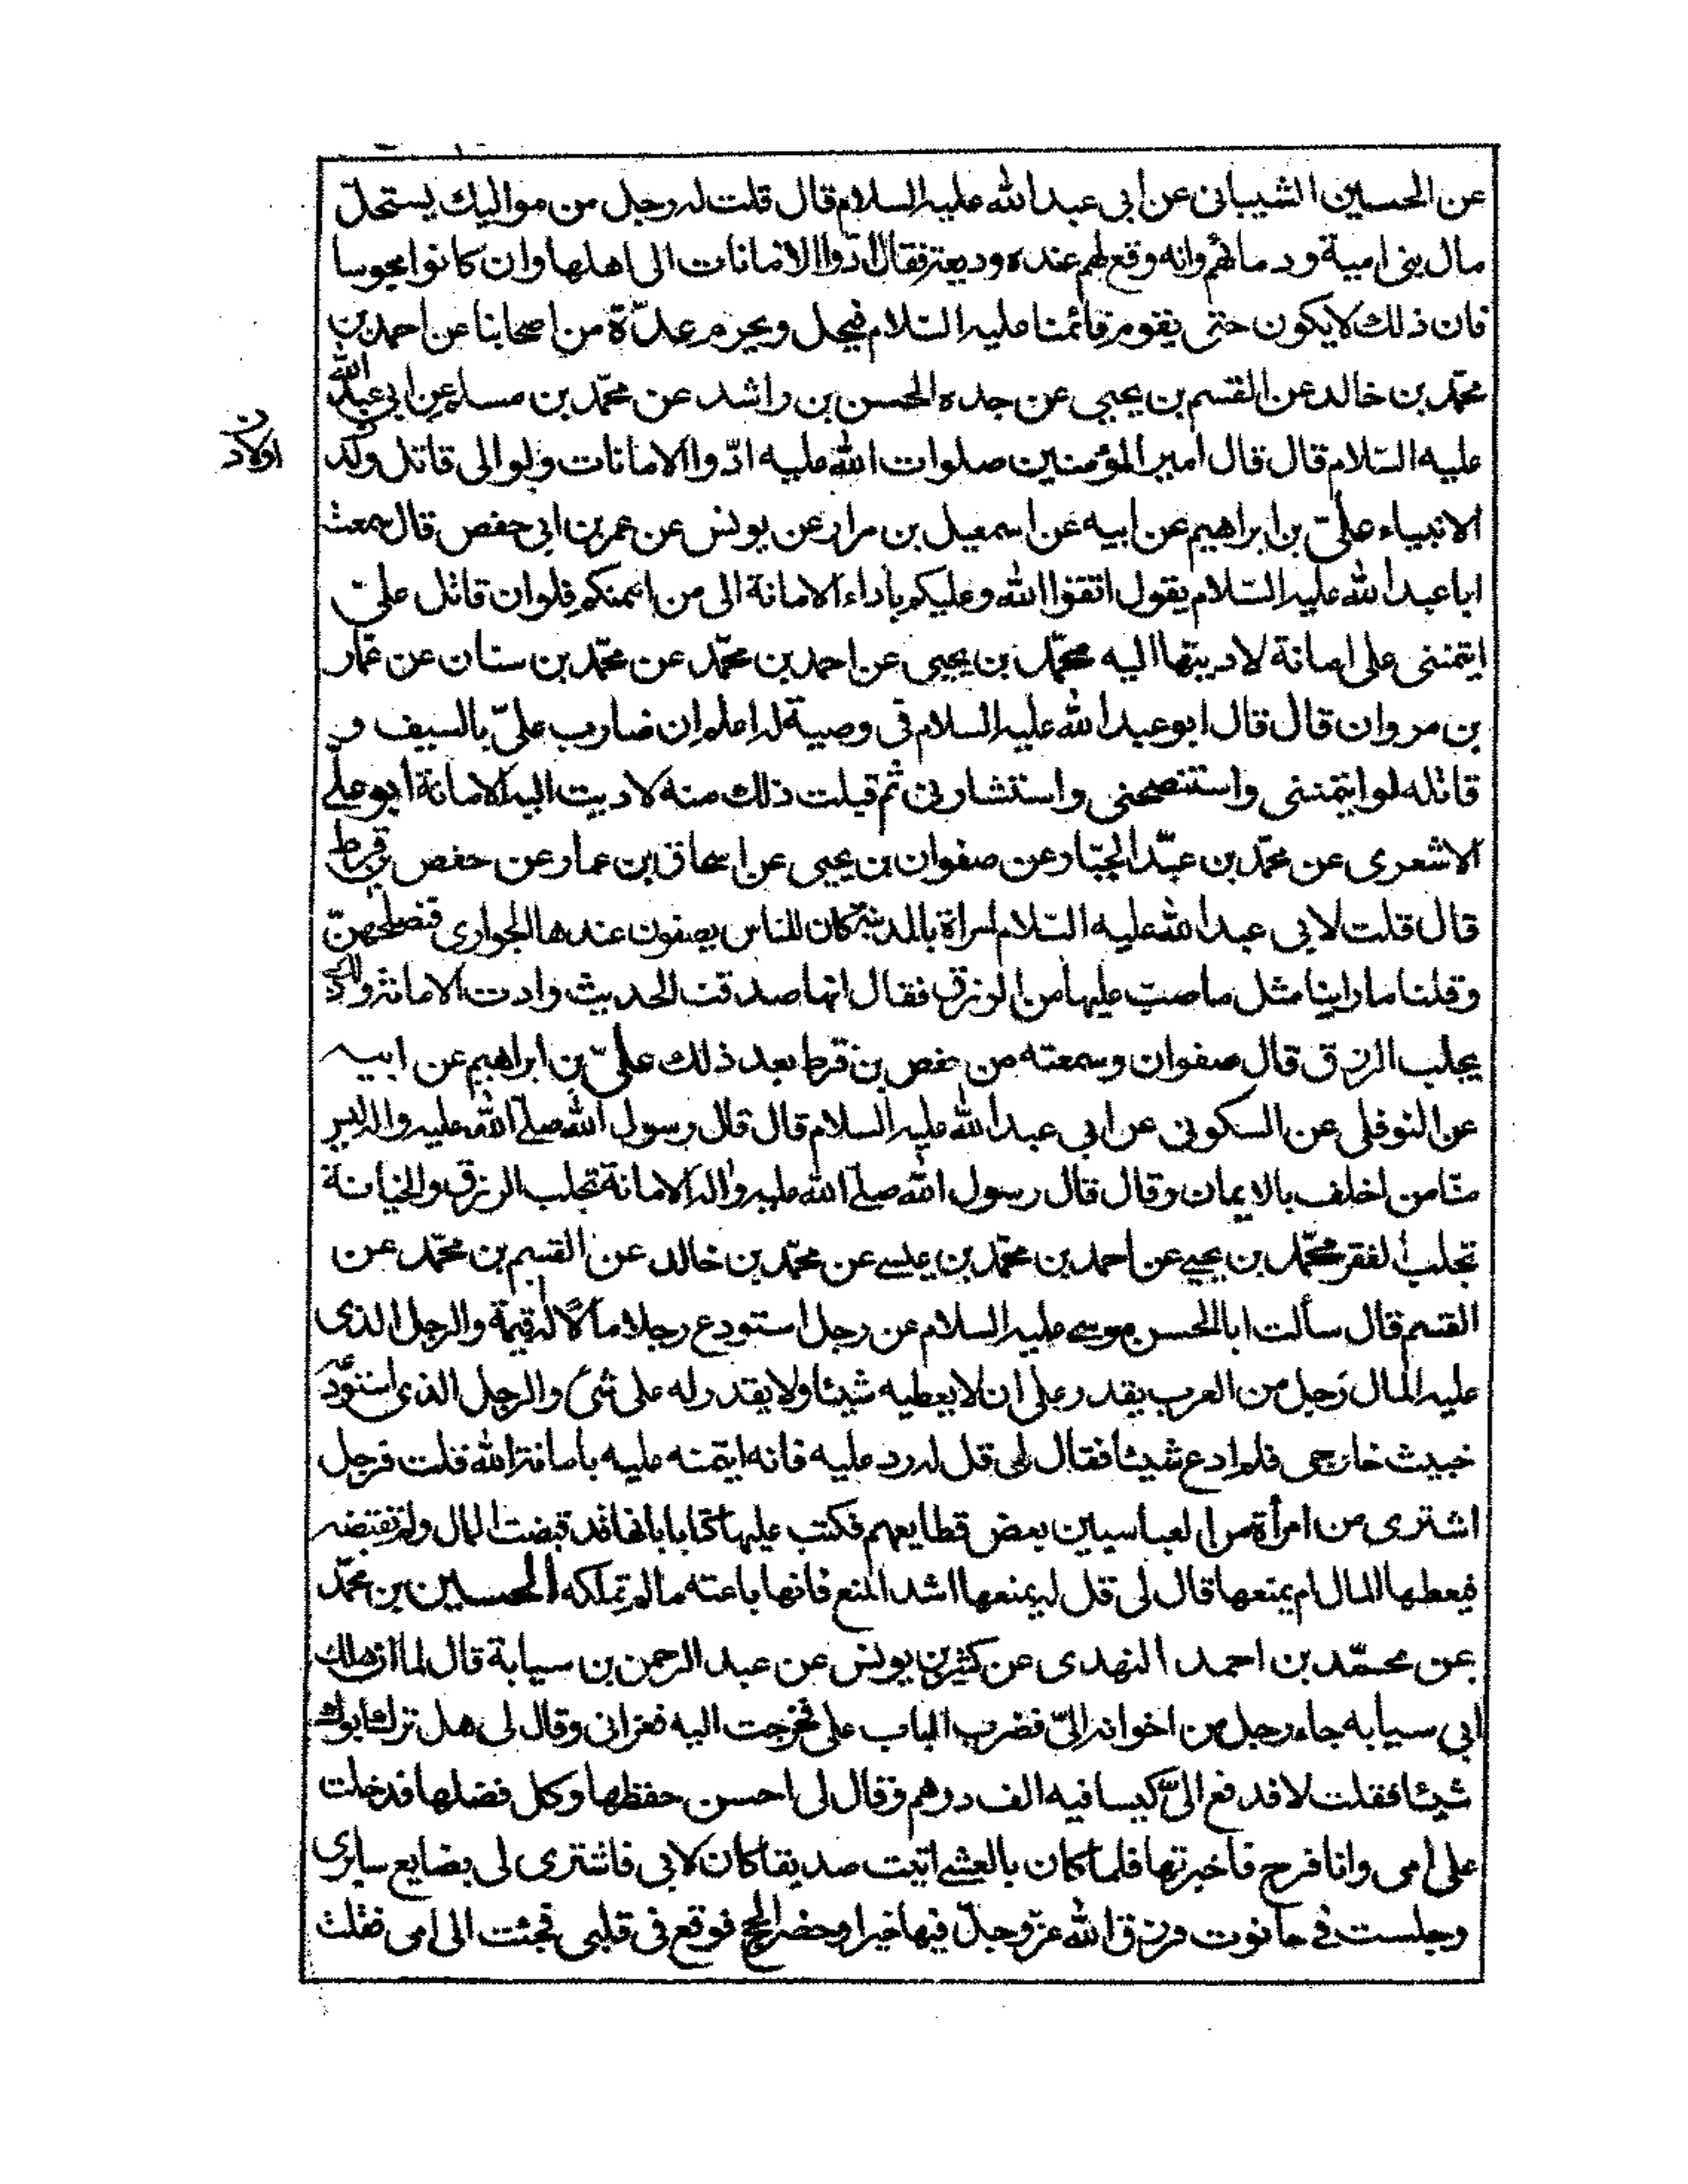 عن الحسين الشيبانى عن ابى عبد الله عليه السلام قال قلت له رجل من مواليك يستحلّ
مال بنى امية و دمائهم وانه وقع لهم عنده وديعة فقال ادّوا الامانات الى اهلها وان كانوا مجوسا
فان ذلك لا يكون حتى يقوم قائمنا عليه السّلام فيحل ويحرم عدّة من اصحابنا عن احمد بن
محمّد بن خالد عن القسم بن يحيى عن جده الحسن بن راشد عن محمّد بن مسلم عن ابى عبد الله
عليه السّلام قال قال امير المؤمنين صلوات الله عليه ادّوا الامانات ولو الى قاتل ولد
اولاد ن
الانبياء علىّ بن ابراهيم عن ابيه عن اسمعيل بن مرار عن يونس عن عمر بن ابى حفص قال سمعت
ابا عبد الله عليه السّلام يقول اتقوا الله وعليكم باداء الامانة الى من ائتمنكم فلو ان قاتل علىّ
ايتمننى على امانة لاديتها اليه محمّد بن يحيى عن احمد بن محمّد عن محمّد بن سنان عن عمّار
بن مروان قال قال ابو عبد الله عليه السلام فى وصية له اعلم ان ضارب علىّ بالسيف و
قاتله لو ايتمننى واستنصحنى واستشارنى ثم قبلت ذلك منه لاديت اليه الامانة ابو على
الاشعرى عن محمّد بن عبد الجبّار عن صفوان بن يحيى عن اسحاق بن عمار عن حفص بن قرط
قال قلت لابى عبد الله عليه السّلام امراة بالمدينة كان للناس يضعون عندها الجوارى فتصلحهنّ
وقلنا ما راينا مثل ما صبّ عليها من الرزق فقال انها صدقت الحديث وادت الامانة وذلك
يجلب الرزق قال صفوان وسمعته من حفص بن قرط بعد ذلك علىّ بن ابراهيم عن ابيه
عن النوفلى عن السكونى عن ابى عبد الله عليه السلام قال قال رسول الله صلى الله عليه واله ليس
منّا من اخلف بالايمان وقال قال رسول الله صلى الله عليه واله الامانة تجلب الرزق والخيانة
تجلب الفقر محمّد بن يحيى عن احمد بن محمّد بن عيسى عن محمّد بن خالد عن القسم بن محمّد عن
القسم قال سألت ابا الحسن موسى عليه السلام عن رجل استودع رجلا مالًا له قيمة والرجل الذى
عليه المال رجل من العرب يقدر على ان لا يعطيه شيئا ولا يقدر له على شئ والرجل الذى استودعه
خبيث خارجى فلم ادع شيئا فقال لى قل له رد عليه فانه ايتمنه عليه بامانة الله قلت فرجل
اشترى من امرأة من العباسيين بعض قطايعهم فكتب عليها كتابا بانها قد قبضت المال ولم تقبضه
فيعطها المال ام يمنعها قال لى قل له يمنعها اشد المنع فانها باعته ما لم تملكه الحسين بن محمّد
عن محمّد بن احمد النهدى عن كثير بن يونس عن عبد الرحمن بن سيابة قال لما ان هلك
ابى سيابه جاء رجل من اخوانه الىّ فضرب الباب على فخرجت اليه فعزانى وقال لى هل ترك ابوك
شيئا فقلت لا فدفع الىّ كيسا فيه الف درهم وقال لى احسن حفظها وكل فضلها فدخلت
على امى وانا فرح فاخبرتها فلما كان بالعشى اتيت صديقا كان لابى فاشترى لى بضايع سابرى
وجلست فى حانوت فرزق الله عزّ وجلّ فيها خيرا وحضر الحج فوقع فى قلبى فجئت الى امى فقلت